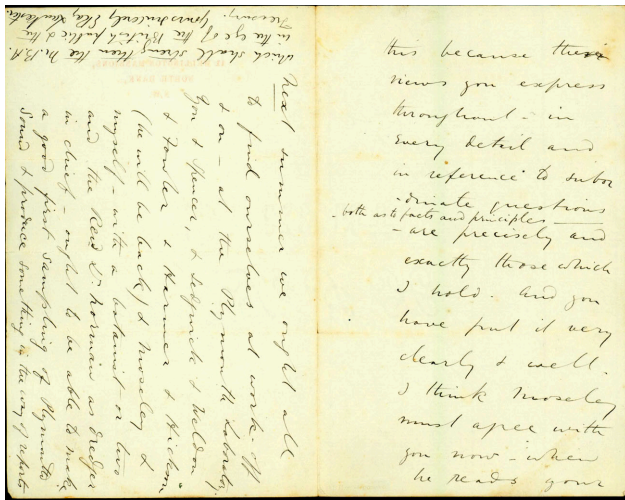 this because the
views you express
throughout - in
every detail and
in reference to subor
-dinate questions
- both as to facts and principles -
- are precisely and
exactly those which
I hold. and you
have put it very
clearly & well.
I think Moseley
must agree with
you now - when
he reads your
Next summer we ought all
to find ourselves at work off
& on - at the Plymouth Laboraty.
You & Spencer, & Sedgwick & Weldon
& Fowler & Harmer & Hickson
(he will be back) & Moseley &
myself - with a botanist or two
and the Revd Dr. Norman as dredger
in chief - ought to be able to make
a good first sampling of Plymouth
Sound & produce something in the way of reports
which shall strengthen the M.B.A.
in the eye of the British public & the
Treasury.
Yours sincerely E Ray Lankester